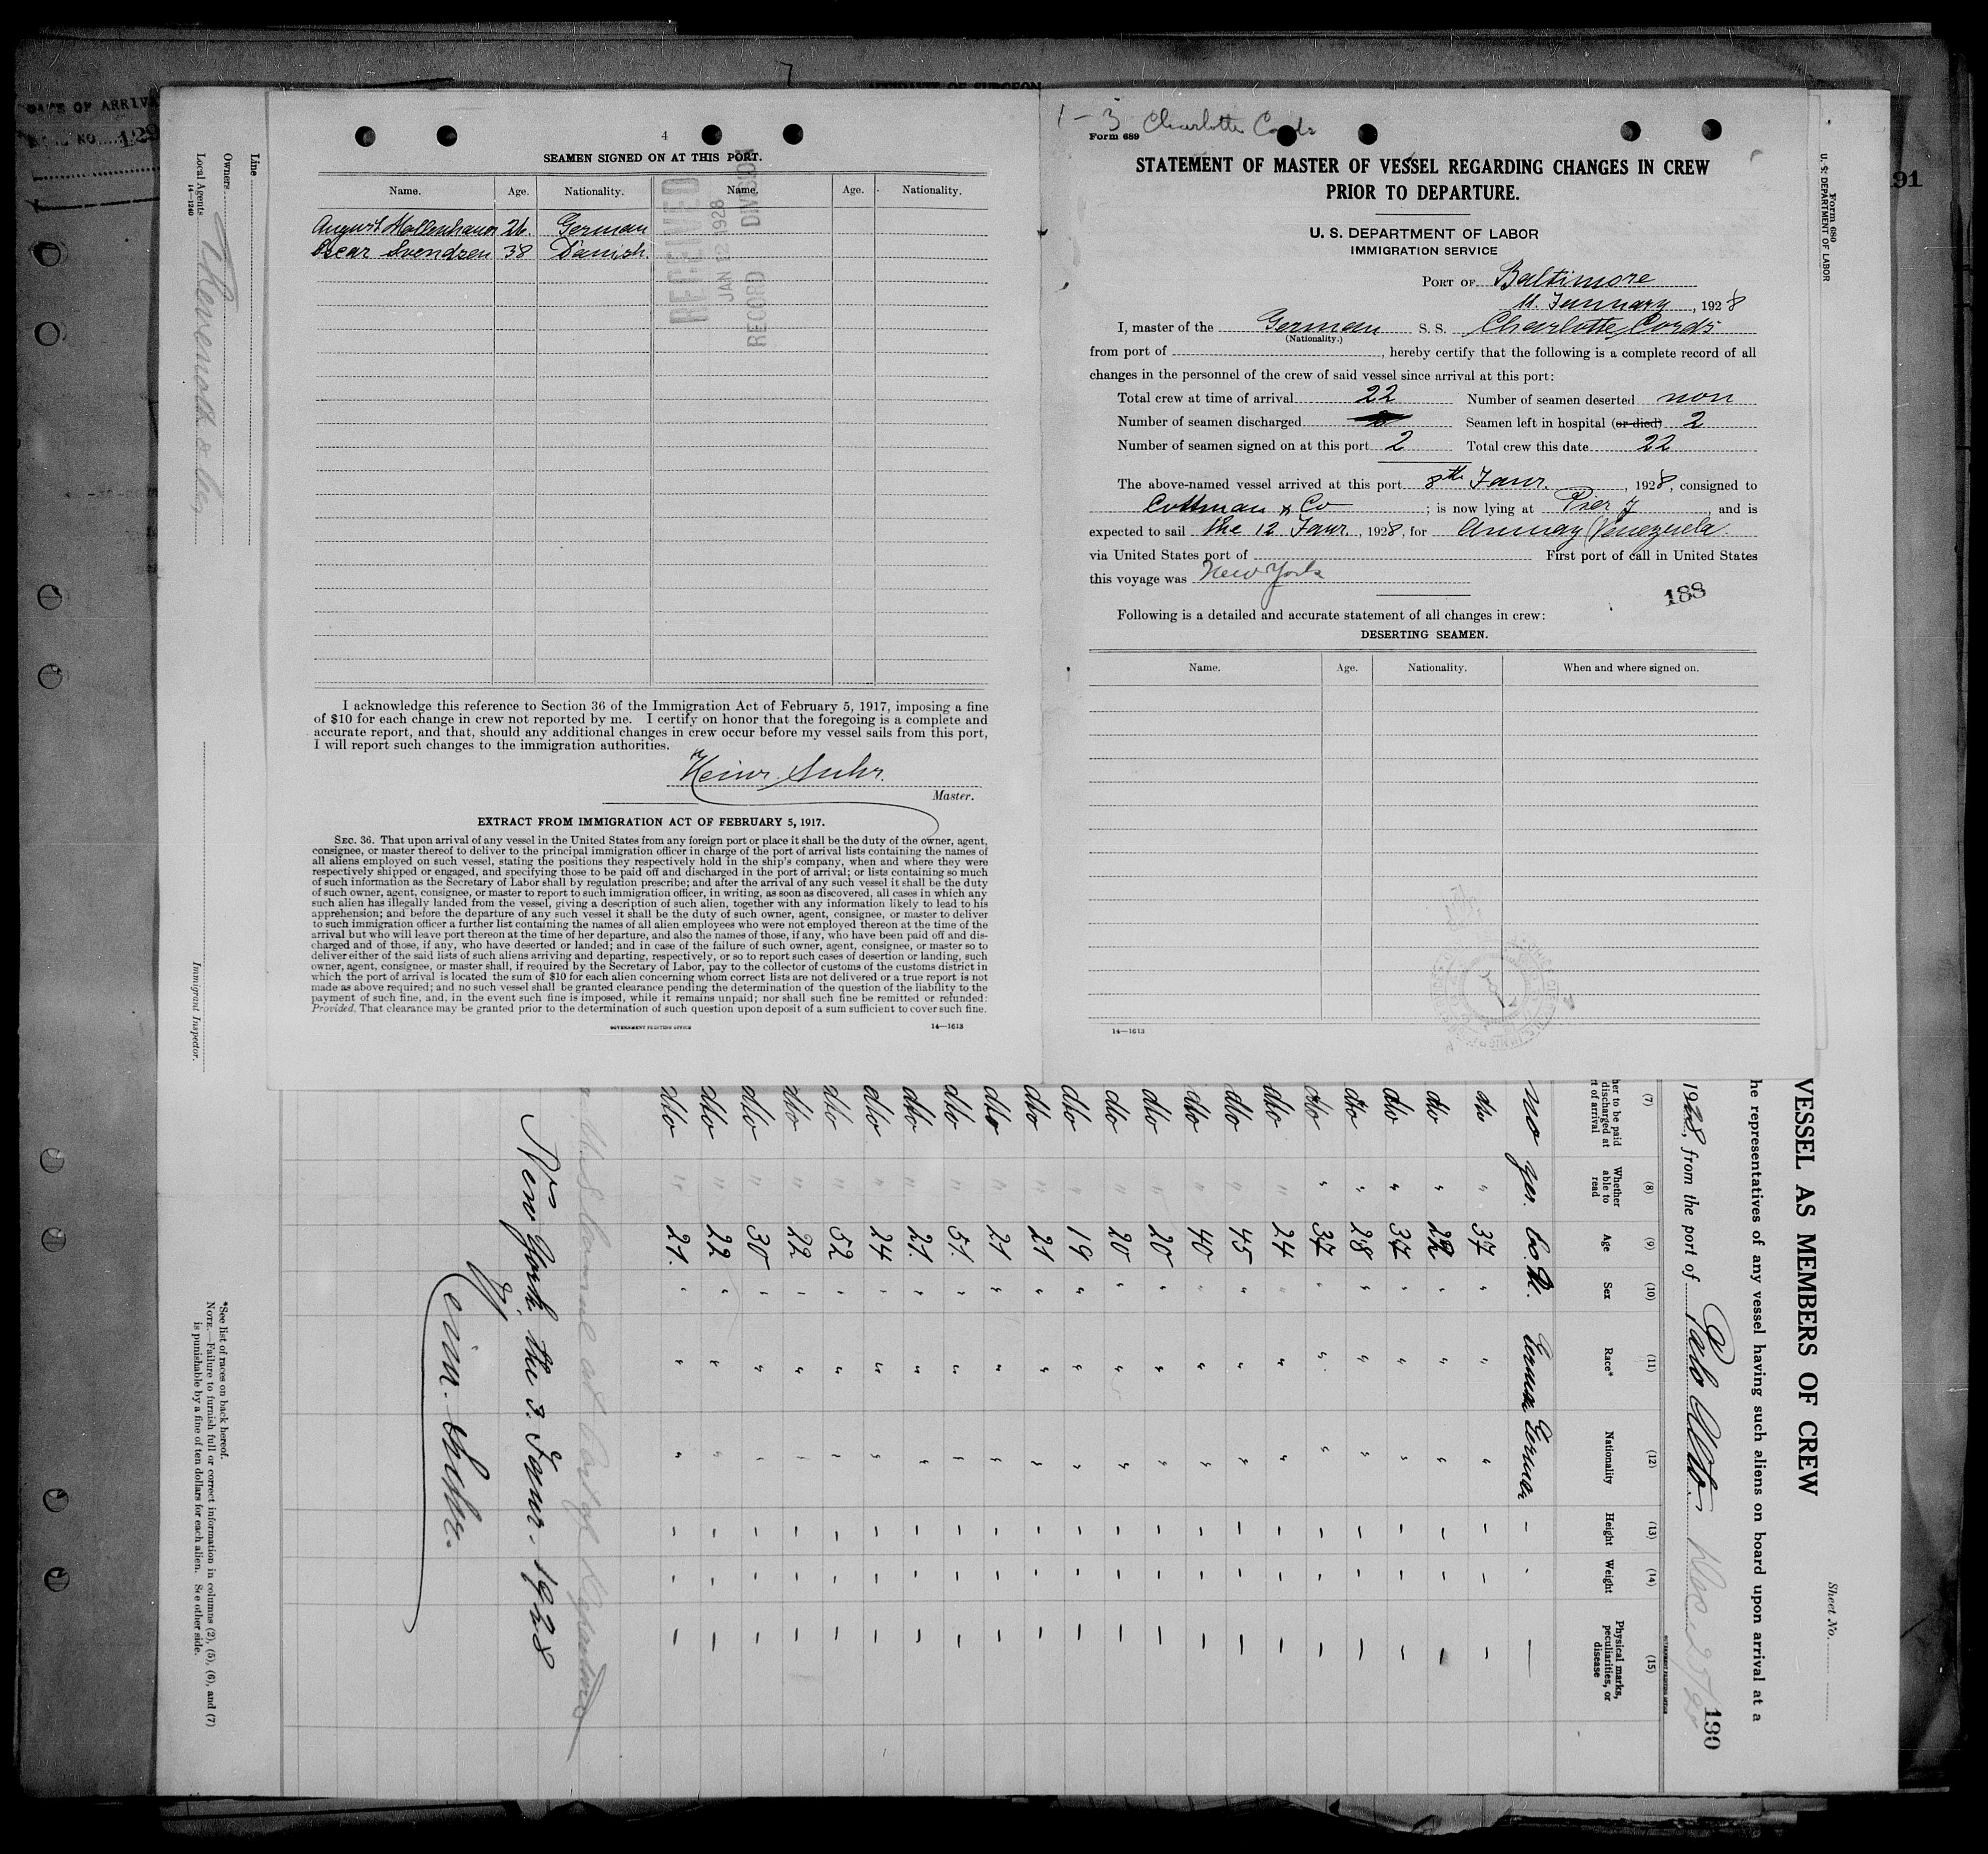 4
SEAMEN SIGNED ON AT THIS PORT.
Name. Age. Nationality. Name. Age. Nationality.
August Mollenhauer 26. German
Oscar Svendsen 38 Danish.
RECEIVED
JAN 12 1928
RECORD DIVISION
I acknowledge this reference to Section 36 of the Immigration Act of February 5, 1917, imposing a fine
of $10 for each change in crew not reported by me. I certify on honor that the foregoing is a complete and
accurate report, and that, should any additional changes in crew occur before my vessel sails from this port,
I will report such changes to the immigration authorities.
Heinr. Suhr.
Master.
EXTRACT FROM IMMIGRATION ACT OF FEBRUARY 5, 1917.
SEC. 36. That upon arrival of any vessel in the United States from any foreign port or place it shall be the duty of the owner, agent,
consignee, or master thereof to deliver to the principal immigration officer in charge of the port of arrival lists containing the names of
all aliens employed on such vessel, stating the positions they respectively hold in the ship's company, when and where they were
respectively shipped or engaged, and specifying those to be paid off and discharged in the port of arrival; or lists containing so much
of such information as the Secretary of Labor shall by regulation prescribe; and after the arrival of any such vessel it shall be the duty
of such owner, agent, consignee, or master to report to such immigration officer, in writing, as soon as discovered, all cases in which any
such alien has illegally landed from the vessel, giving a description of such alien, together with any information likely to lead to his
apprehension; and before the departure of any such vessel it shall be the duty of such owner, agent, consignee, or master to deliver
to such immigration officer a further list containing the names of all alien employees who were not employed thereon at the time of the
arrival but who will leave port thereon at the time of her departure, and also the names of those, if any, who have been paid off and dis-
charged and of those, if any, who have deserted or landed; and in case of the failure of such owner, agent, consignee, or master so to
deliver either of the said lists of such aliens arriving and departing, respectively, or so to report such cases of desertion or landing, such
owner, agent, consignee, or master shall, if required by the Secretary of Labor, pay to the collector of customs of the customs district in
which the port of arrival is located the sum of $10 for each alien concerning whom correct lists are not delivered or a true report is not
made as above required; and no such vessel shall be granted clearance pending the determination of the question of the liability to the
payment of such fine, and, in the event such fine is imposed, while it remains unpaid; nor shall such fine be remitted or refunded:
Provided, That clearance may be granted prior to the determination of such question upon deposit of a sum sufficient to cover such fine.
GOVERNMENT PRINTING OFFICE 14—1613
1 - 3 Charlotte Cords
Form 689
STATEMENT OF MASTER OF VESSEL REGARDING CHANGES IN CREW
PRIOR TO DEPARTURE.
U. S. DEPARTMENT OF LABOR
IMMIGRATION SERVICE
PORT OF Baltimore
11. January, 1928
I, master of the German S. S. Charlotte Cords
(Nationality.)
from port of , hereby certify that the following is a complete record of all
changes in the personnel of the crew of said vessel since arrival at this port:
Total crew at time of arrival 22 Number of seamen deserted non
Number of seamen discharged Seamen left in hospital (or died) 2
Number of seamen signed on at this port 2 Total crew this date 22
The above-named vessel arrived at this port 8th Janr. , 1928, consigned to
Cottman & Co ; is now lying at Pier 7 , and is
expected to sail the 12. Janr. , 1928, for Amuay Venezuela.
via United States port of First port of call in United States
this voyage was New York
188
Following is a detailed and accurate statement of all changes in crew:
DESERTING SEAMEN.
Name. Age. Nationality. When and where signed on.
14—1613
DATE OF ARRIVA
129
AFFIDAVIT OF SURGEON
91
Line
Owners
Local Agents
14—1240
Immigrant Inspector.
Form 680
U. S. DEPARTMENT OF LABOR
Sheet No.
VESSEL AS MEMBERS OF CREW
he representatives of any vessel having such aliens on board upon arrival at a
1928, from the port of Palo Alto.
190
GOVERNMENT PRINTING OFFICE
(7) (8) (9) (10) (11) (12) (13) (14) (15)
her to be paid
discharged at
rt of arrival
Whether
able to
read
Age
Sex
Race*
Nationality
Height
Weight
Physical marks,
peculiarities, or
disease
no yes. 60. M. German German - - —
dto " 37 " " " - - -
dto " 22 " " " - - -
dto " 37 " " " - - -
dto " 28 " " " - - -
dto " 37 " " " - - -
dto " 24 " " " - - -
dto " 45 " " " - - -
dto " 40 " " " - - -
dto " 20 " " " - - -
dto " 20 " " " - - -
dto " 19 " " " - - -
dto " 21 " " " - - -
dto " 21 " " " - - -
dto " 51. " " " - - -
dto " 21. " " " - - -
dto " 24 " " " - - -
dto " 52 " " " - - -
dto " 22 " " " - - -
dto " 30 " " " - - -
dto " 22 " " " - - -
dto " 21. " " " - - -
New York the 3. Janr. 1928
Heinr. Suhr.
*See list of races on back hereof.
NOTE.—Failure to furnish full or correct information in columns (2), (5), (6), and (7)
is punishable by a fine of ten dollars for each alien. See other side.